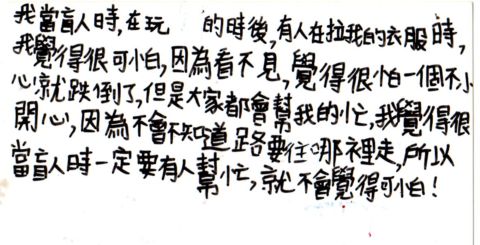 我當盲人時,在玩 的時後,有人在拉我的衣服時,
我覺得很可怕,因為看不見,覺得很怕一個不小
心就跌倒了,但是大家都會幫我的忙,我覺得很
開心,因為不會不知道路要往哪裡走,所以
當盲人時一定要有人幫忙,就不會覺得可怕!